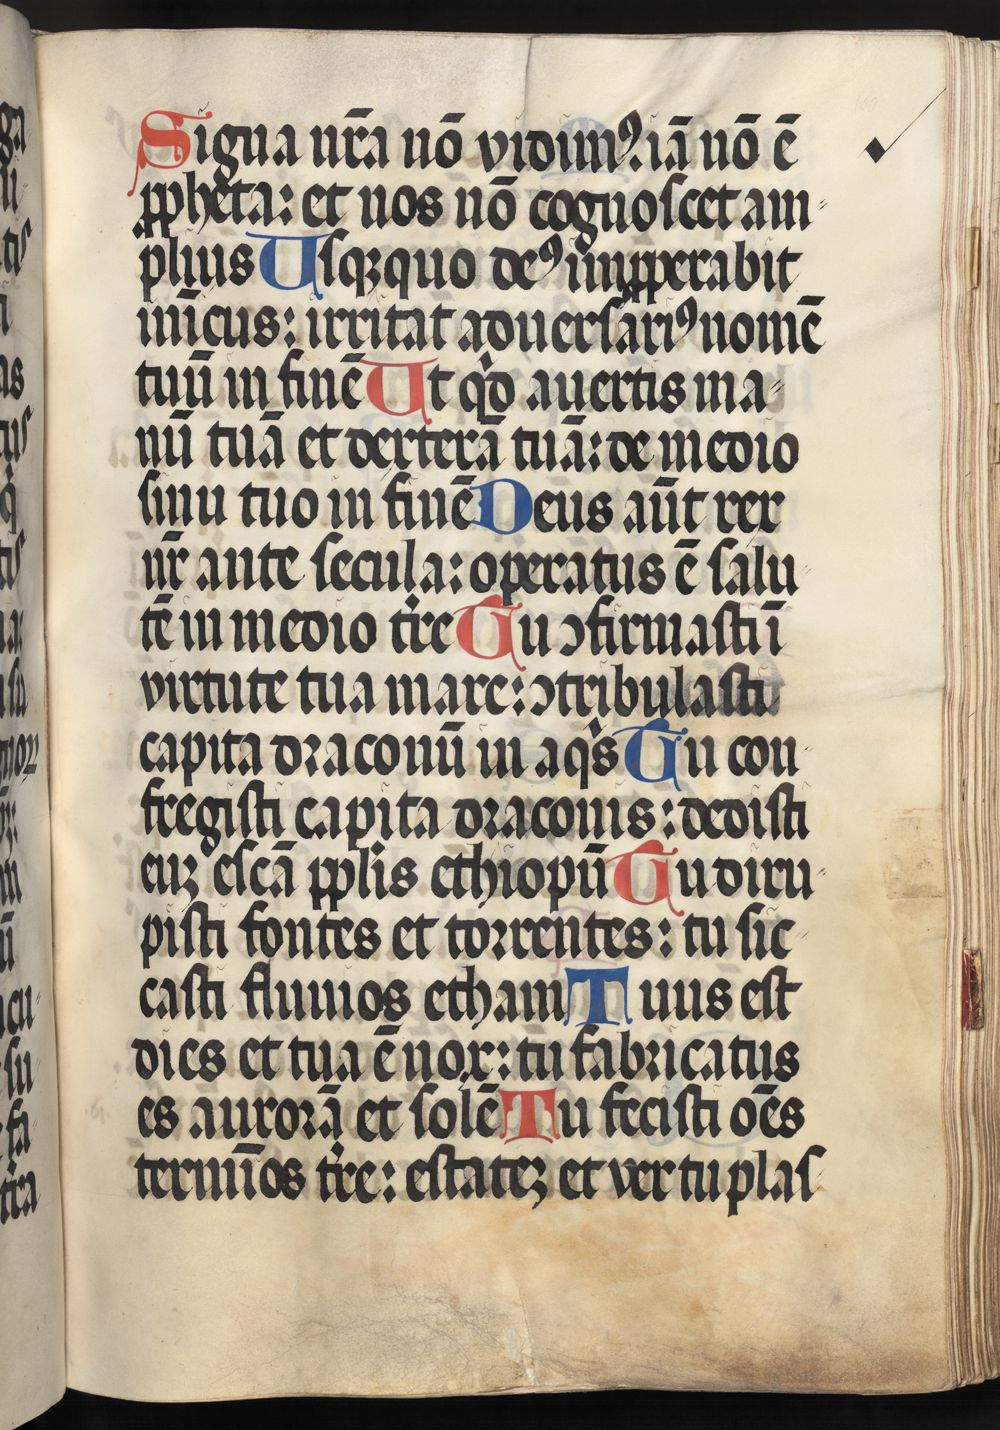 Signa nr̄a nō vidimꝰ. iā nō ē
ꝓpheta: et nos nō cognoscet am
plius Usqꝫquo deꝰ imꝓperabit
inīcus: irritat aduersariꝰ nomē
tuū in finē Ut qͥd auertis ma
nū tuā et dexterā tuā: de medio
sinu tuo in finē Deus aūt rex
nr̄ ante secula: operatus ē salu
tē in medio tr̄e Tu ↄfirmasti ī
virtute tua mare: ↄtribulasti
capita draconū in aqͥs Tu con
fregisti capita draconis: dedisti
euꝫ escā ppl̄is ethiopū Tu diru
pisti fontes et torrentes: tu sic
casti fluuios etham Tuus est
dies et tua ē nox: tu fabricatus
es aurorā et solē Tu fecisti oēs
termīos tr̄e: estateꝫ et ver tu plas